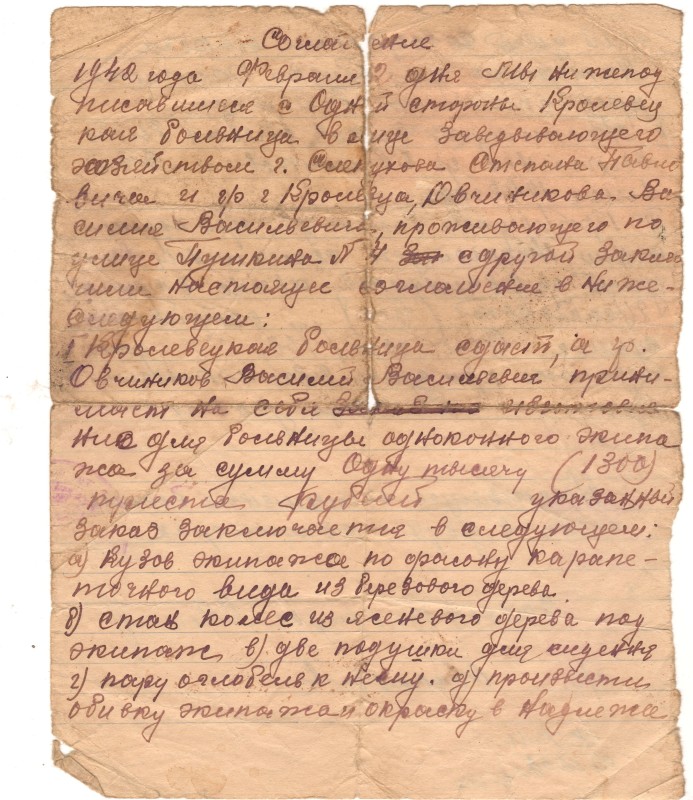 Соглашение
1942 года Февраля 2 дня Мы нижепод
писавшиеся с Одной стороны Кролевец
кая больница в лице Заведывающего
хозяйством г. Степана Павло
вича и гр г Кролевца, Овчиникова Ва
силия Васильевича, проживающего по
улице Пушкина № 4 с другой Заклю
чили настоящее соглашение в ниже-
следующем:
1 Кролевецкая больница сдает, а гр.
Овчиников Василий Васильевич прини-
мает на себя изготовле
ние для больницы одноконного экипа
жа за сумму Одну тысячу (1300)
рублей указанный
Заказ Заключается в следующем:
а) Кузов экипажа по фасону карапе-
точного вида из березового дерева.
б) стан колес из ясеневого дерева под
экипаж в) две подушки для сидения
г) пару оглобель к нему. д) произвести
обивку экипажа и окраску в надлежа